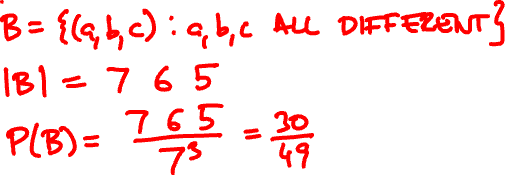 B = {(a,b,c) : a,b,c ALL DIFFERENT}
|B| = 7 6 5
P(B) = 7 6 5 / 7³ = 30/49